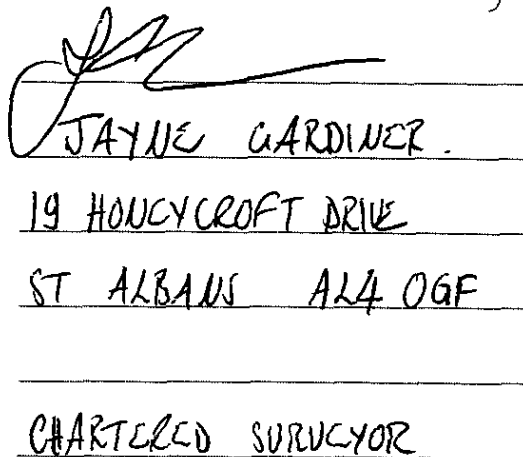 JAYNE GARDINER.
19 HONEYCROFT DRIVE
ST ALBANS AL4 0GF
CHARTERED SURVEYOR